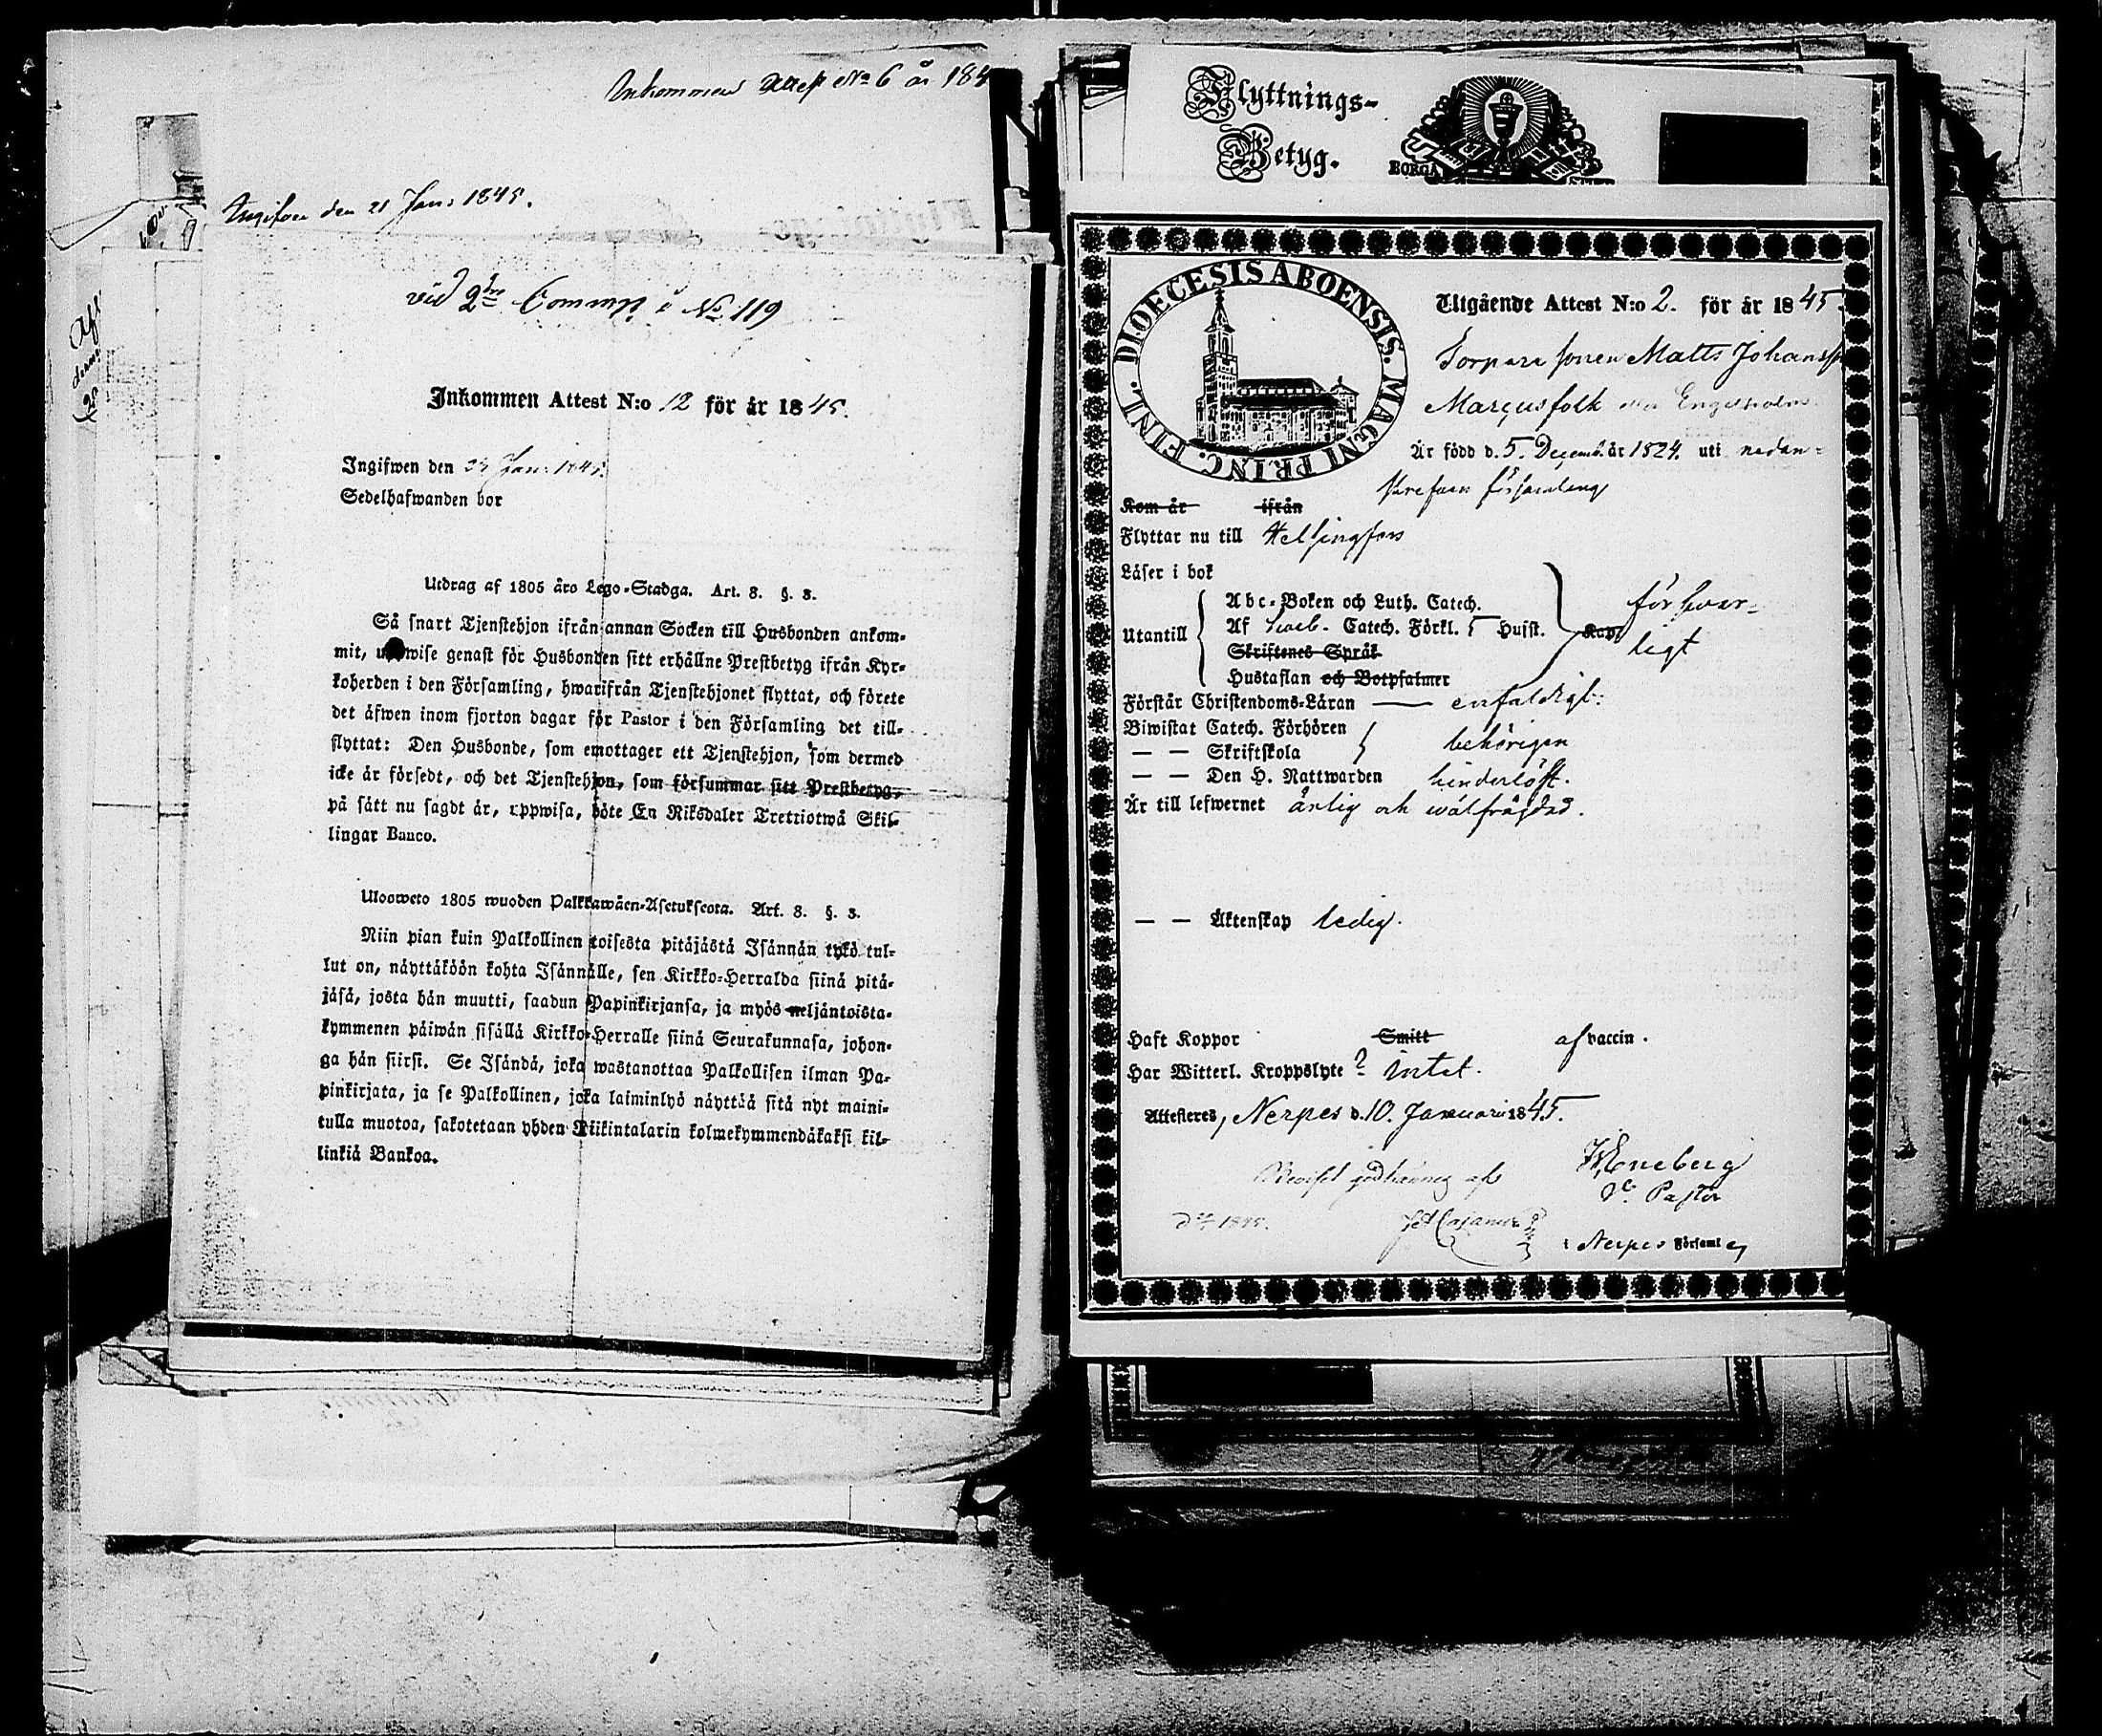 Inkommen Attest No 6 år 184
Ingifven den 21 Jan: 1845.
vid 2dre Comp. å No 119
Inkommen Attest N:o 12 för år 1845.
Ingifwen den Jan: 1845.
Sedelhafwanden bor
Utdrag af 1805 års Lego-Stadga. Art. 8. §. 3.
Så snart Tjenstehjon ifrån annan Socken till Husbonden ankom-
mit, uppwise genast för Husbonden sitt erhållne Prestbetyg ifrån Kyr-
koherden i den Församling, hwarifrån Tjenstehjonet flyttat, och förete
det äfwen inom fjorton dagar för Pastor i den Församling det till-
flyttat: Den Husbonde, som emottager ett Tjenstehjon, som dermed
icke är försedt, och det Tjenstehjon, som försummar sitt Prestbetyg,
på sätt nu sagdt är, uppwisa, böte En Riksdaler Trettiotwå Skil-
lingar Banco.
Ulosweto 1805 wuoden Palkkawäen-Asetuksesta. Art. 8. §. 3.
Niin pian kuin Palkollinen toisesta pitäjästä Isännän tykö tul-
lut on, näyttäköön kohta Isännälle, sen Kirkko-Herralda siinä pitä-
jäsä, josta hän muutti, saadun Papinkirjansa, ja myös neljäntoista-
kymmenen päiwän sisällä Kirkko-Herralle siinä Seurakunnasa, johon-
ga hän siirsi. Se Isändä, joka wastanottaa Palkollisen ilman Pa-
pinkirjata, ja se Palkollinen, joka laiminlyö näyttää sitä nyt maini-
tulla muotoa, sakotetaan yhden Riikintalarin kolmekymmendäkaksi kil-
linkiä Bankoa.
Flyttnings-
Betyg.
BORGÅ
DIOECESIS ABOENSIS. MAGNI PRINC. FINL.
Utgående Attest N:o 2. för år 1845.
Torpare sonen Matts Johanss
Marcusfolk Engelholm
Är född d. 5. Decemb. år 1824. uti nedan-
skrefven församling
Kom år ifrån
Flyttar nu till Helsingfors
Läser i bok
Utantill
Abc-Boken och Luth. Catech.
Af Sveb. Catech. Förkl. 5 Husst. Kap.
Skriftenes Språk
Hustaflan och Botpsalmer
försvar-
ligt
Förstår Christendoms-Läran — enfaldigt:
Biwistat Catech. Förhören
— — Skriftskola behörigen
— — Den H. Nattwarden hinderlöst.
Är till lefwernet ärlig och wälfräjdad.
— — Äktenskap ledig.
Haft Koppor Smitt af vaccin.
Har Witterl. Kroppslyte? intet.
Attesteres, Nerpes d. 10. Januarii 1845.
Beviset godkännes af
1845.
Cajanus
Pastor
i Nerpes Församl